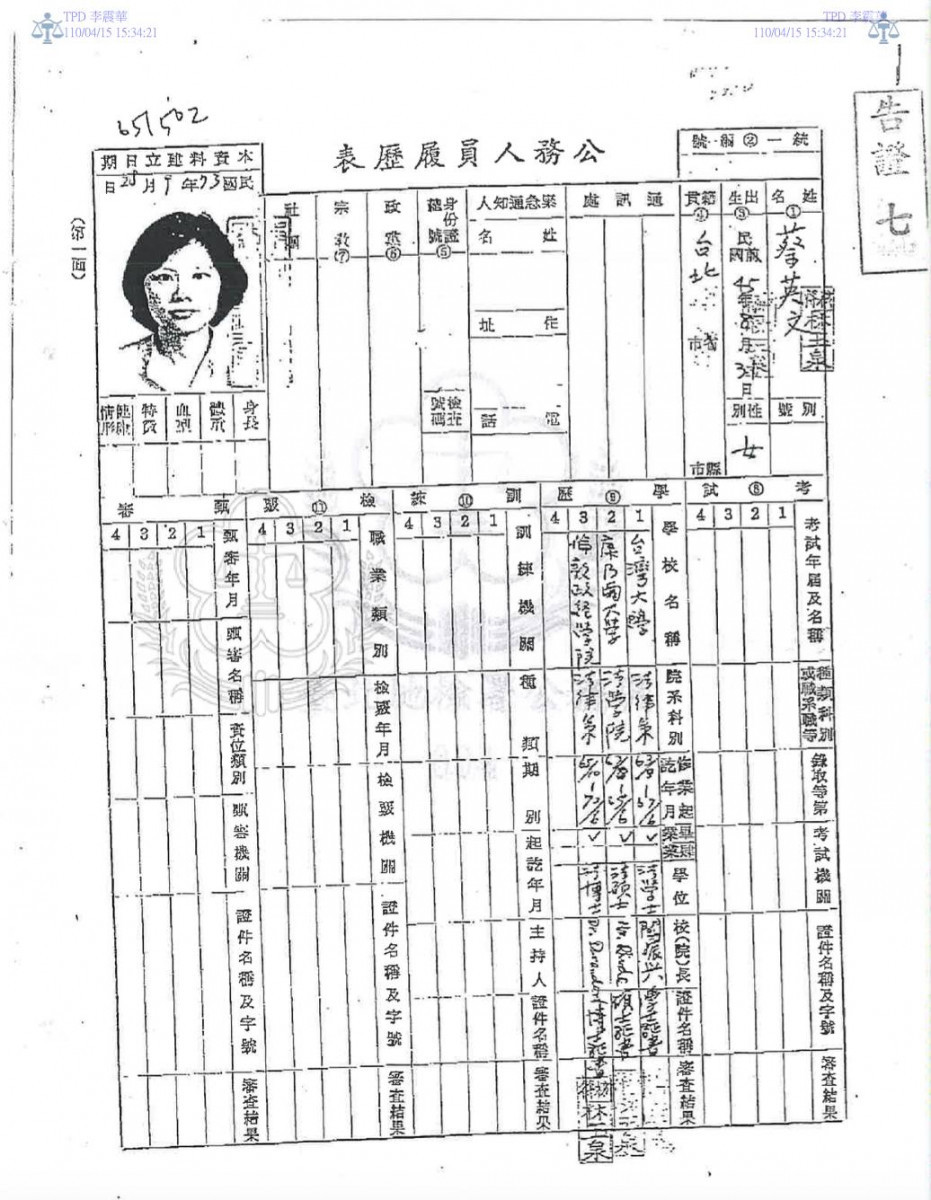 TPD 李震華
110/04/15 15:34:21
TPD 李震華
110/04/15 15:34:21
651502
告證七
公務人員履歷表
統一②編號
本資料建立日期
民國73年9月28日
(第一面)
姓名①
蔡英文
別號
出生③
民國前
45年8月3日
性別
女
籍貫④
台北
省市
縣市
通訊處
緊急通知人
姓名
住址
電話
身份證號⑤
檢查號碼
政黨⑥
宗教⑦
社團
身長
體重
血型
特徵
健康情形
考試⑧
1
2
3
4
考試年屆及名稱
種類科別或職系職等
錄取等第
考試機關
證件名稱及字號
審查結果
學歷⑨
1
2
3
4
學校名稱
台灣大學
康乃爾大學
倫敦政經學院
院系科別
法律系
法學院
法律系
修業起訖年月
畢業
肄業
學位
法學士
法碩士
法博士
校(院)長
閻振興
證件名稱
審查結果
訓練⑩
1
2
3
4
訓練機關
種類
期別
起訖年月
主持人
證件名稱
審查結果
檢覈⑪
1
2
3
4
職業類別
檢覈年月
檢覈機關
證件名稱及字號
審查結果
甄審
1
2
3
4
甄審年月
甄審名稱
資位類別
甄審機關
證件名稱及字號
審查結果